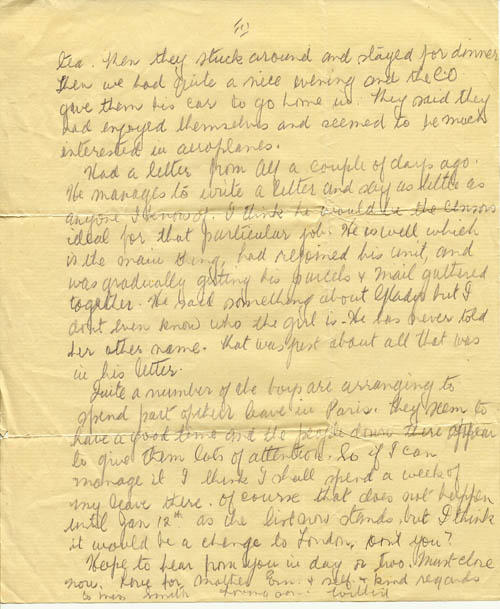 tea. Then they stuck around and stayed for dinner
Then we had quite a nice evening and the C.O
gave them his car to go home in. They said they
had enjoyed themselves and seemed to be much
interested in aeroplanes.
Had a letter from Alf a couple of days ago.
He manages to write a letter and say as little as
anyone I know of. I think he would be the censors
ideal for that particular job. He is well which
is the main thing, had rejoined his unit, and
was gradually getting his parcels & mail gathered
together. He said something about Gladys but I
dont even know who the girl is. He has never told
her other name. That was just about all that was
in his letter.
Quite a number of the boys are arranging to
spend part of their leave in Paris. They seem to
have a good time and the people down there appear
to give them lots of attention. So if I can
manage it I think I shall spend a week of
my leave there. Of course that does not happen
until Jan 12th as the list now stands, but I think
it would be a change to London, Don't you?
Hope to hear from you in day or two. Must close
now. Love for Mother Ern. & self & kind regards
to Miss Smith Loving son